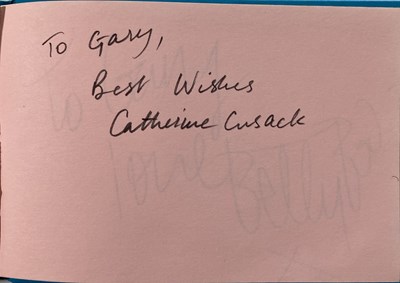 To Gary,
Best Wishes
Catherine Cusack